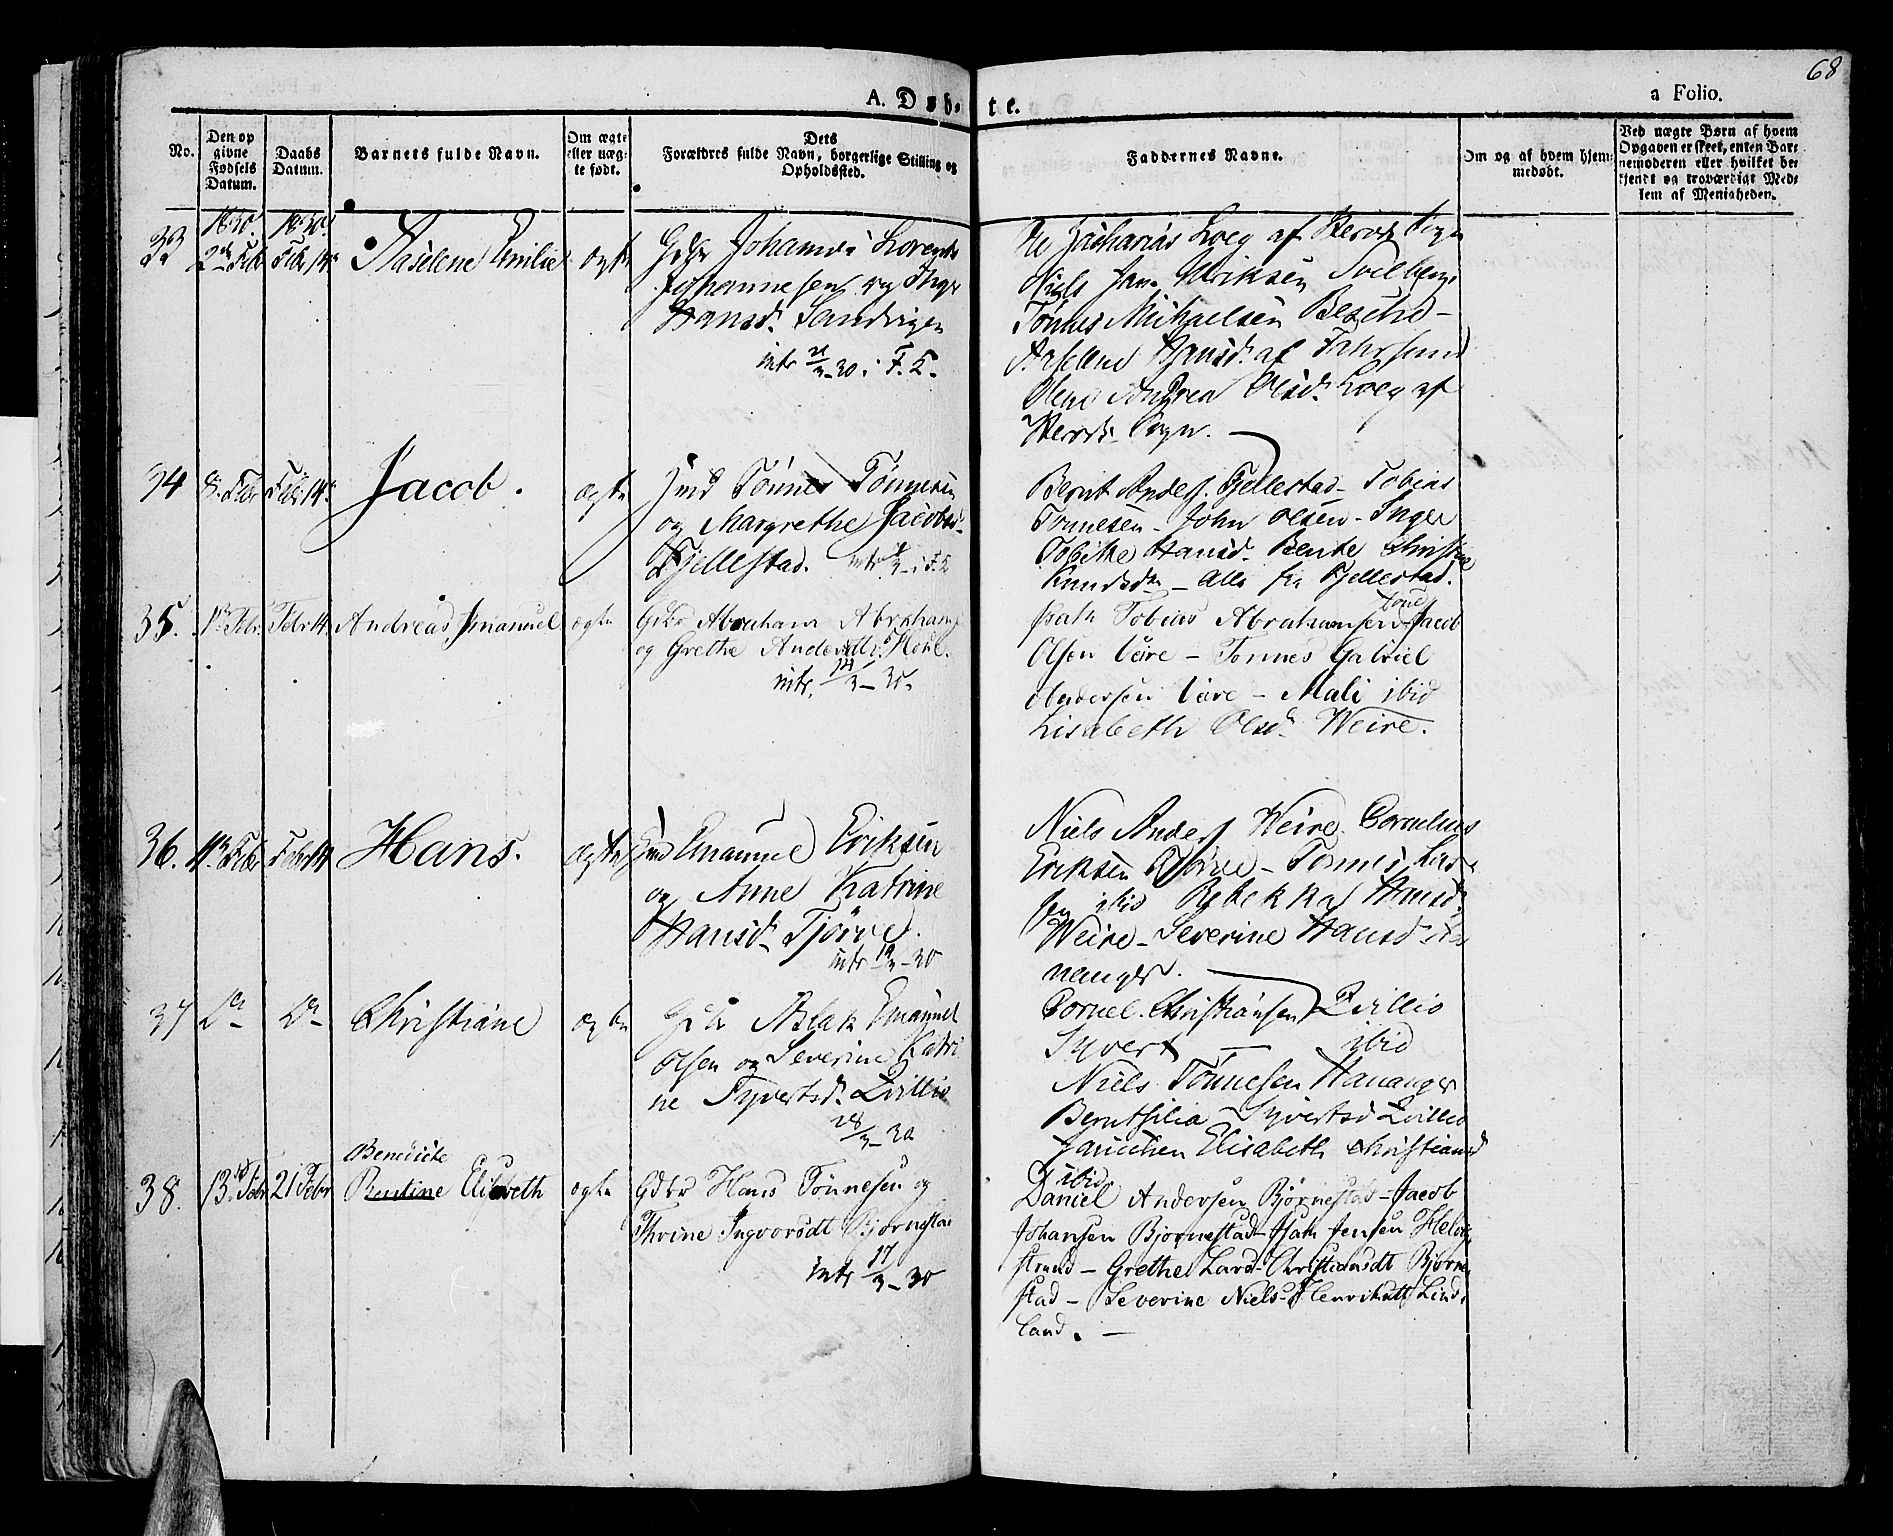 68
A. Døb-
te.
a Folio.
No.
Den op
givne
Fødsels
Datum.
Daabs
Datum.
Barnets fulde Navn.
Om ægte
eller uæg-
te født.
Dets
Forældres fulde Navn, borgerlige Stilling og
Opholdssted.
Faddernes Navne.
Om og af hvem hjem-
medøbt.
Ved uægte Børn af hvem
Opgaven er skeet, enten Bar-
nemoderen eller hvilket be-
kjendt og troværdigt Med-
lem af Menigheden.
1830.
1830.
33
2de Feb
Feb 14
Aaselene Emilie
ægte
Gdbr Johannes Lorents
Johannesen og Inger
Hansd. Sandvigen
intr 21/3-30 i F. K.
Zacharias Loeg af Herods Sogn
Niels Jan Eriksen
Tønnes Michaelsen
Aaselene Hansd. af Fahrsund
Olene Andrea Olsd. Loeg af
Herods Sogn.
34
8. Febr
Febr 14
Jacob.
ægte
Ind Tønnes Tønnesen
og Margrethe Jacobsd.
Fjellestad.
Bernt Anders. Fjellestad - Tobias
Tønnesen - John Olsen - Inger
Tobine Hansd. Bente Christine
Knudsd. - Alle fra Fjellestad.
35.
Febr
Febr 14
Andreas Emanuel
ægte
Gdbr Abraham Abraham
og Grethe Andersdtr
intr. 14/3-30.
Isak Tobias Abrahamsen - Jacob
Olsen Vere - Tønnes Gabriel
Andersen Vere - Mali ibid
Lisabeth Olsd. Weire.
36.
11te Febr
Febr 14
Hans.
ægte
Ind Emanuel Eriksen
og Anne Katrine
Hansd. Tjørve.
intr 19/3-30
Niels Anders Weire. Cornelius
Eriksen Tjørve - Tønnes Lar-
sen ibid Rebekka Hansd.
Weire - Severine Hansd Ha
nanger.
37
Do
Do
Christiane
ægte
Gdbr Aslak Emanuel
Olsen og Severine Catri
ne Syvertsd. Qvillio
28/3-30
Cornel. Christiansen Qvillio
Syvert — ibid
Niels Tønnesen Hananger
Berntsilia Syvertsd Qvillio
Janichen Elisabeth Christiansd
ibid
38.
13de Febr
21 Febr
Benedicte
Bentine Elisabeth
ægte
Gdbr Hans Tønnesen og
Thrine Ingvorsdt Bjørnestad
intr 17/3-30
Daniel Andersen Bjørnestad - Jacob
Johansen Bjørnestad - Isak Jensen Helvig
strand - Grethe Lard. Christiansdt Bjørne
stad - Severine Niels Henriksdt Lind-
land. —